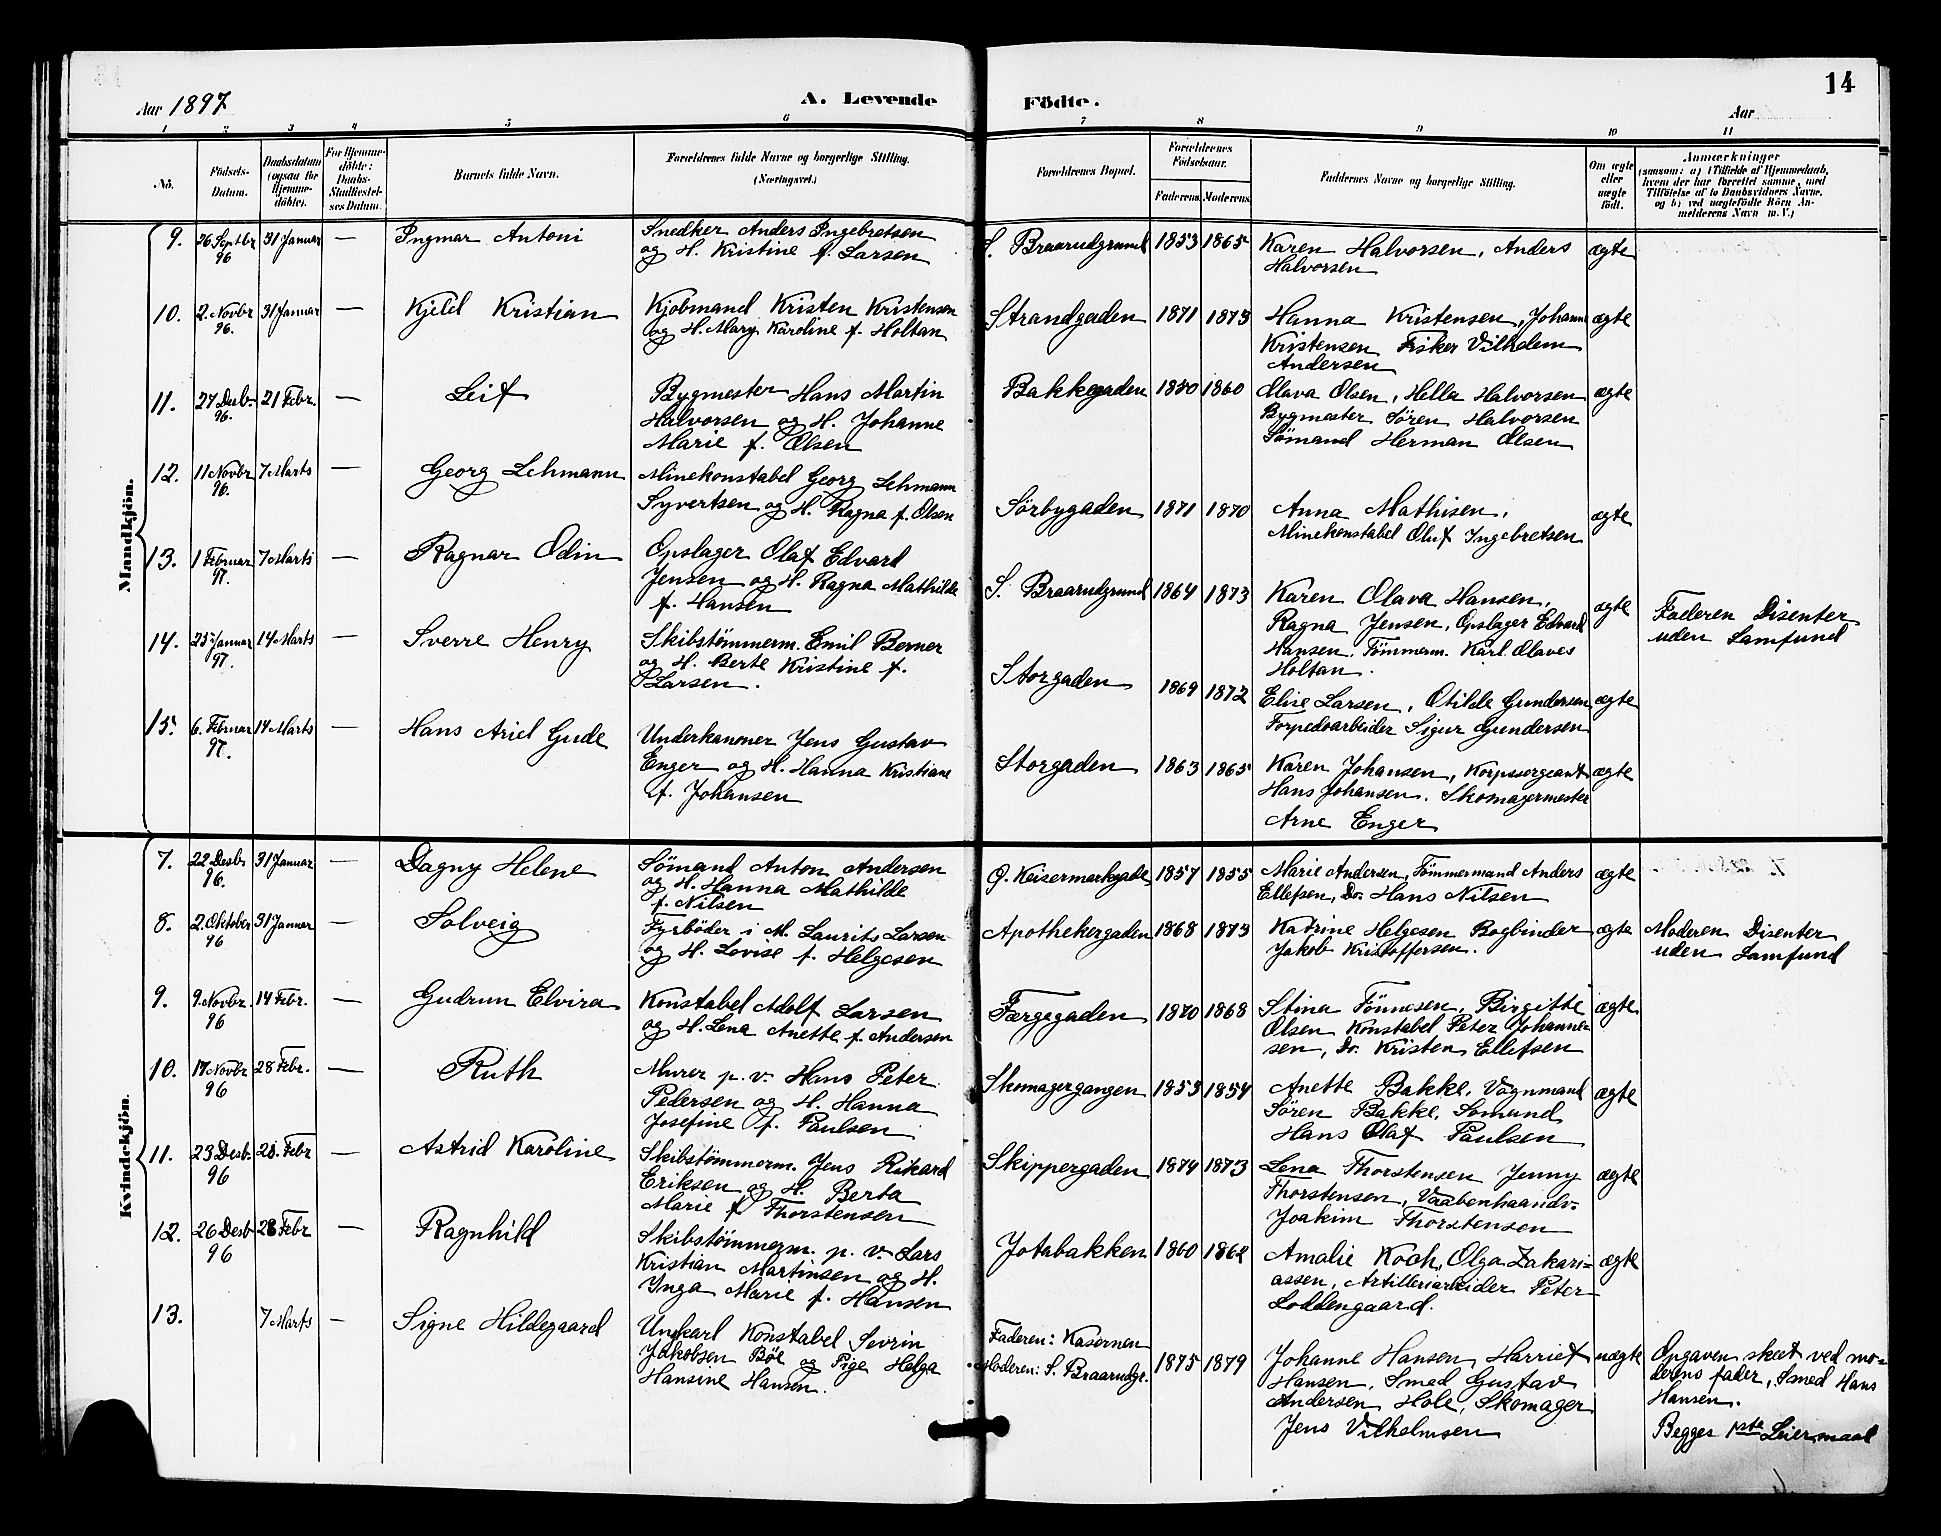 14
Aar 1897
A. Levende Födte.
Aar
1 2 3 4 5 6 7 8 9 10 11
No.
Födsels-
Datum.
Daabsdatum
(ogsaa for
Hjemme-
döbte).
For Hjemme-
döbte:
Daabs-
Stadfæstel-
ses Datum.
Barnets fulde Navn.
Forældrenes fulde Navne og borgerlige Stilling.
(Næringsvei.)
Forældrenes Bopæl.
Forældrenes
Födselsaar.
Faderens Moderens
Faddernes Navne og borgerlige Stilling.
Om ægte
eller
uægte
födt.
Anmærkninger
(saasom: a) i Tilfælde af Hjemmedaab,
hvem der har forrettet samme, med
Tilföielse af to Daabsvidners Navne,
og b) ved uægtefödte Börn An-
melderens Navn m. V.)
Mandkjön.
9. 26 Septbr 96 31 Januar — Ingmar Antoni
Snedker Anders Ingebretsen
og H. Kristine f. Larsen
S. Braarudgrund 1853 1865
Karen Halvorsen, Anders
Halvorsen
ægte
10. 2. Novbr 96. 31 Januar — Kjeld Kristian
Kjøbmand Kristen Kristensen
og H. Mary Karoline f. Holtan
Strandgaden 1871 1873
Hanna Kristensen, Johanne
Kristensen Fisker Vilhelem
Andersen
ægte
11. 27 Desb. 96. 21 Febr. — Leif
Bygmester Hans Martin
Halvorsen og H. Johanne
Marie f. Olsen
Bakkegaden 1860
Olava Olsen, Hella Halvorsen
Bygmester Søren Halvorsen
Sømand Herman Olsen
ægte
12. 11 Novbr 96. 7 Marts — Georg Lehmann
Minekonstabel Georg Lehmann
Syvertsen og H. Ragna f. Olsen
Sörbygaden 1871 1870
Anna Mathisen,
Minekonstabel Oluf Ingebretsen
ægte
13. 1 Februar 97. 7 Marts — Ragnar Odin
Opslager Olaf Edvard
Jensen og H. Ragna Mathilde
f. Hansen
S. Braarudgrund 1864 1873
Karen Olava Hansen,
Ragna Jensen, Opslager Edvard
Hansen. Tømmerm. Karl Olaves
Holtan.
ægte
Faderen Disenter
uden Samfund
14. 25 Januar 97. 14 Marts — Sverre Henry
Skibstømmerm. Emil Berner
og H. Berte Kristine f.
Larsen.
Storgaden 1869 1872
Elise Larsen, Otilde Gundersen
Torpedoarbeider Sigur Gundersen
ægte
15. 6. Februar 97. 14 Marts — Hans Ariel Gude
Underkanoner Jens Gustav
Enger og H. Hanna Kristiane
f. Johansen
Storgaden 1863 1865
Karen Johansen, Korpssergeant
Hans Johansen. Skomagermester
Arne Enger
ægte
Kvindekjön.
7. 22 Desb. 96. 31 Januar — Dagny Helene
Sømand Anton Andersen
og H. Hanna Mathilde
f. Nilsen
Ø. Keisermarkgade 1857 1855
Marie Andersen, Tømmermand Anders
Ellefsen, Do. Hans Nilsen
ægte
8. 2. Oktober 96 31 Januar — Solveig
Fyrbøder i M. Laurits Larsen
og H. Lovise f. Helgesen
Apothekergaden 1868 1873
Katrine Helgesen Bogbinder
Jakob Kristoffersen.
ægte
Moderen Disenter
uden Samfund
9. 9. Novbr 96 14 Febr. — Gudrun Elvira
Konstabel Adolf Larsen
og H. Lena Anette f. Andersen
Færgegaden 1870 1868
Stina Tönnesen, Birgitte
Olsen Konstabel Peter Johanne-
sen, Do. Kristen Ellefsen
ægte
10. 17 Novbr 96 28 Febr. — Ruth
Murer p. v. Hans Peter
Pedersen og H. Hanna
Josefine f. Paulsen
Skomagergangen 1853 1854
Anette Bakke, Vognmand
Søren Bakke, Sømand
Hans Olaf Paulsen
ægte
11. 23 Desb. 96 28 Febr — Astrid Karoline
Skibstømmerm. Jens Rikard
Eriksen og H. Berta
Marie f Thorstensen
Skippergaden 1874 1873
Lena Thorstensen Jenny
Thorstensen, Vaabenhaandv-
Joakim Thorstensen
ægte
12. 26 Desb 96 28 Febr — Ragnhild
Skibstømmerm. p. v. Lars
Kristian Martinsen og H.
Inga Marie f. Hansen
Jotabakken 1860 1862
Amalie Koch, Olga Zakari-
assen, Artilleriarbeider Peter
Loddengaard.
ægte
13. 7 Marts — Signe Hildegaard
Ungkarl Konstabel Sevrin
Jakobsen Bøe og Pige Helga
Hansine Hansen.
Faderen: Kasernen
Moderen: S. Braarudgr. 1875 1879
Johanne Hansen, Harriet
Hansen, Smed Gustav
Andersen Hole, Skomager
Jens Vilhelmsen
uægte
Opgaven skeet ved mo-
derens fader, Smed Hans
Hansen.
Begges 1ste Leiermaal